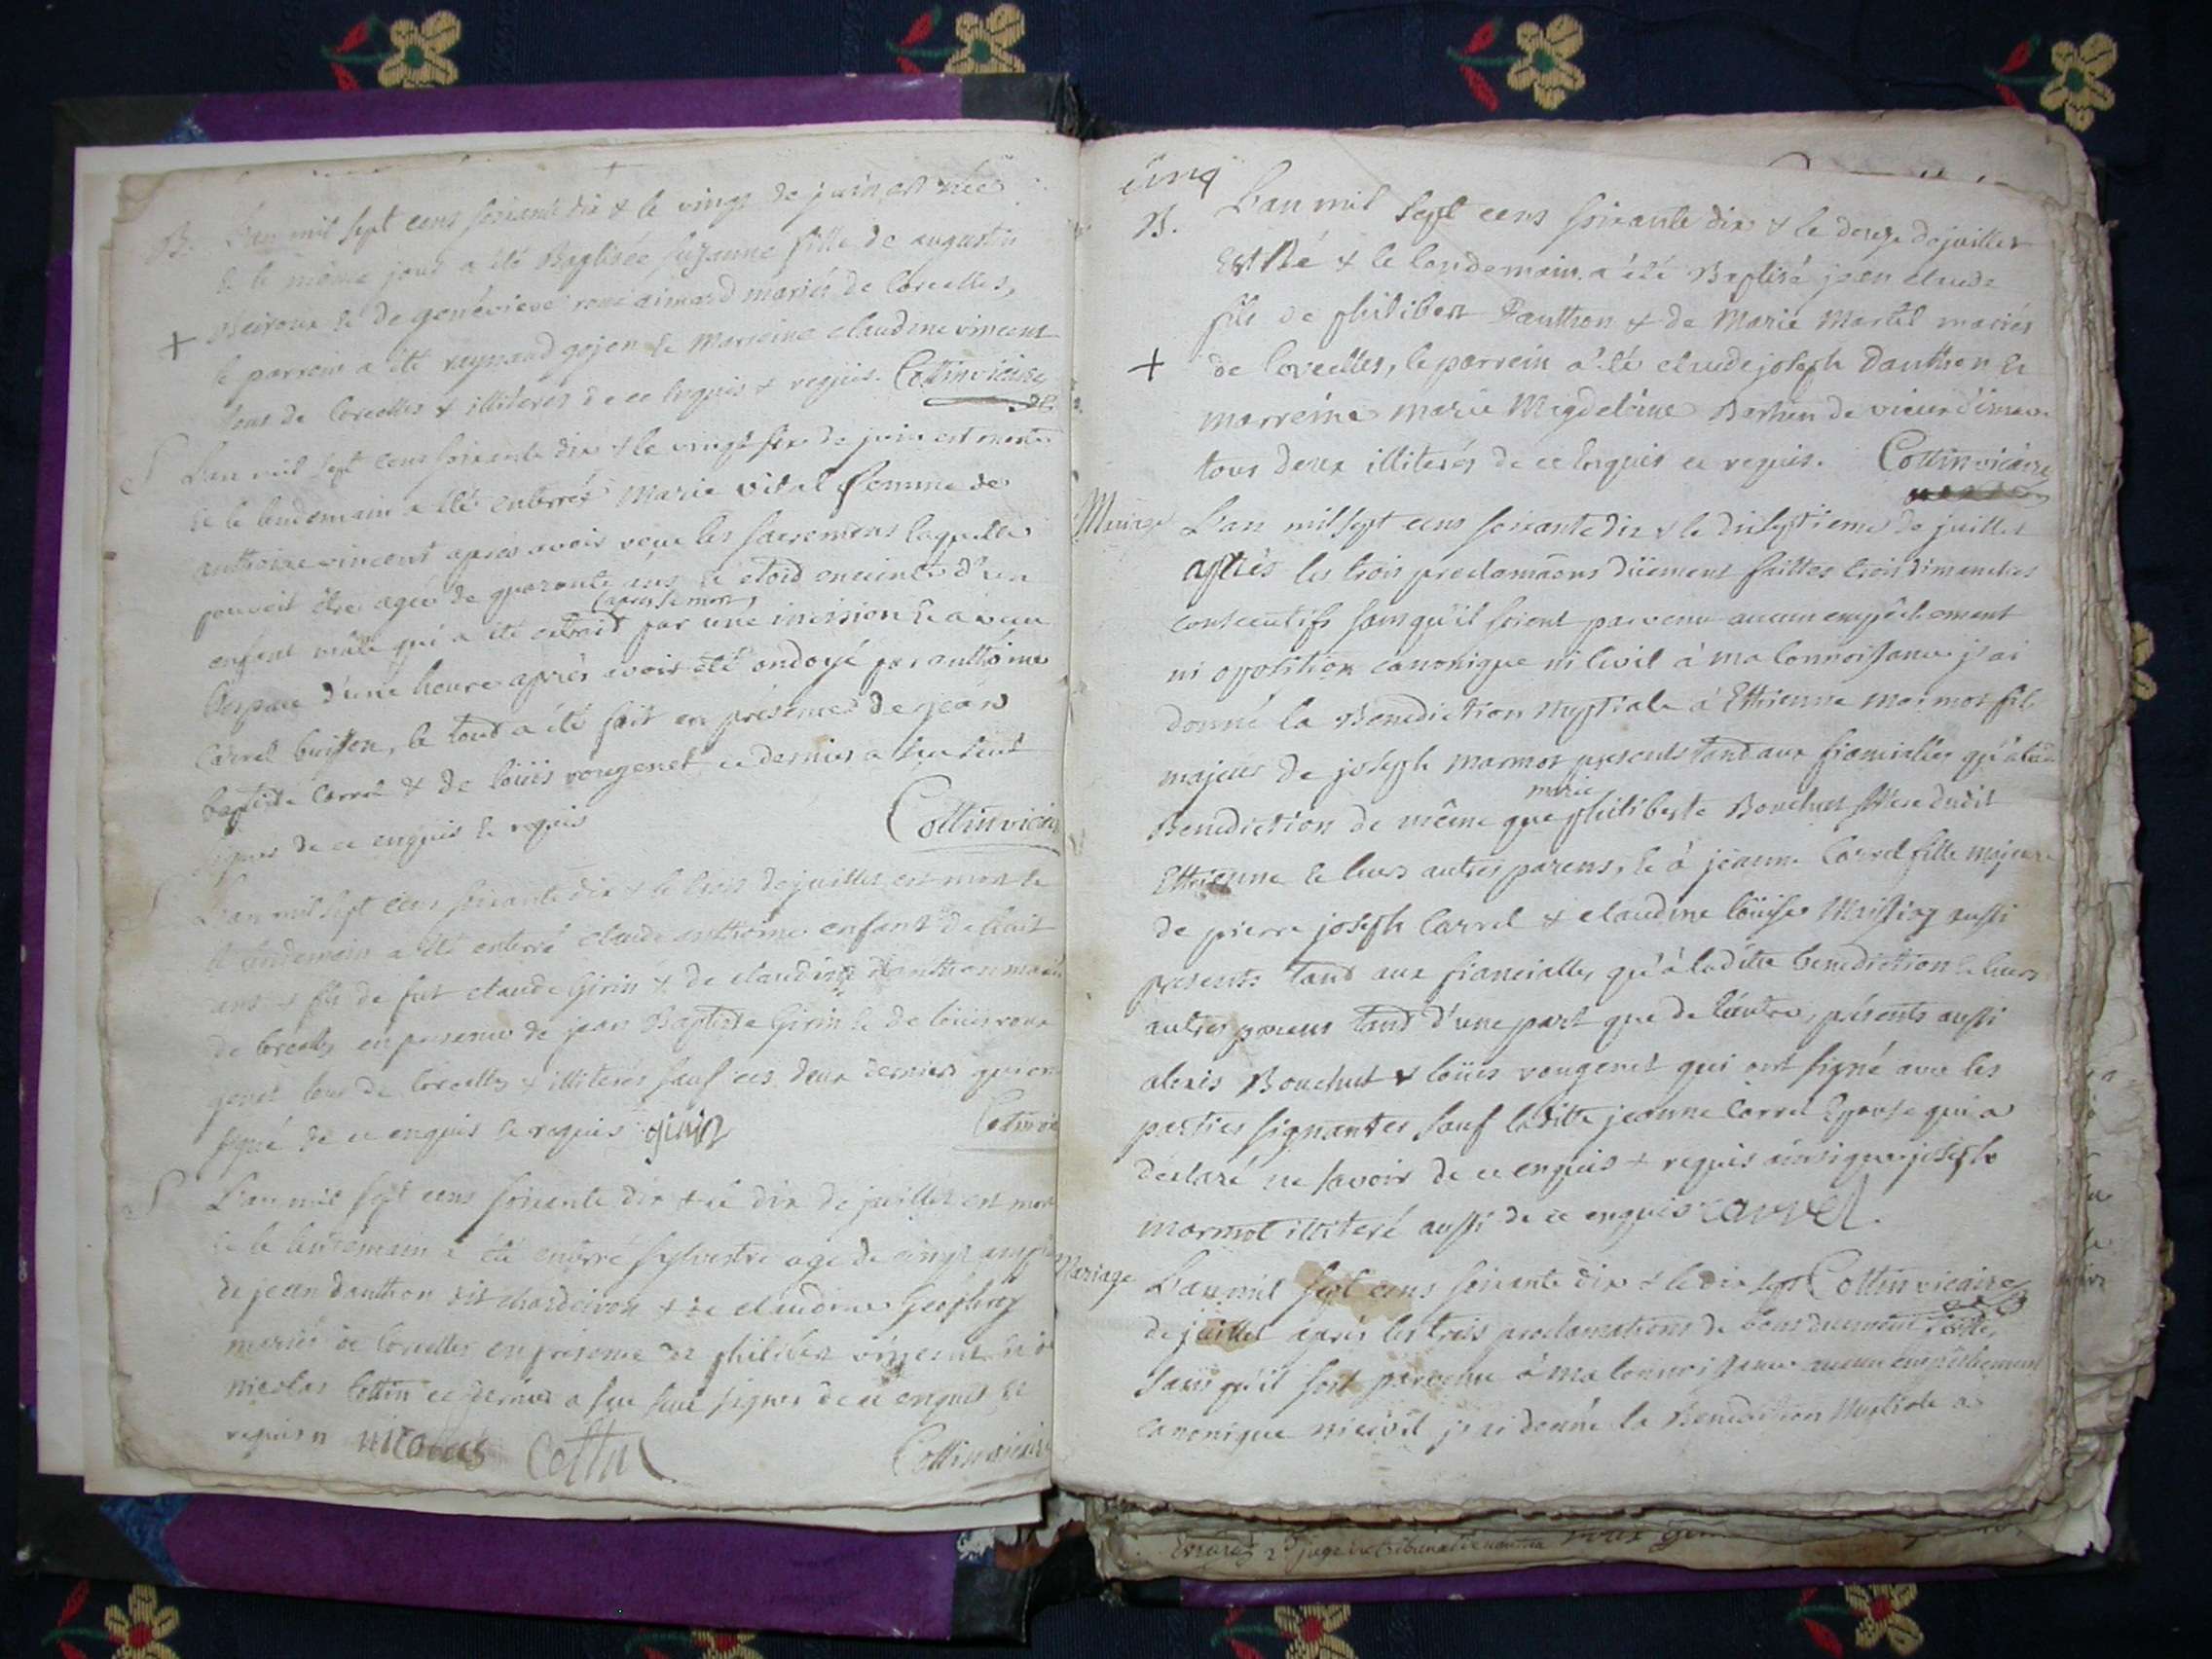 B. L'an mil sept cens soixante dix & le vingt de juin est née
& le même jour a été Baptisée suzanne fille de augustin
& de genevieve aimard mariés de Corcelles,
+ le parrein a été reymond gojon & marreine claudine vincent
tous de Corcelles & illiterés de ce enquis & requis. Cottin vicaire
S L'an mil sept cens soixante dix & le vingt six de juin est morte
& le lendemain a été enterrée Marie vital femme de
anthoine vincent après avoir reçue les sacremens laquelle
pouvoit être agée de quarante ans & etoit enceinte d'un
(après sa mort)
enfant mâle qui a été extrait par une incision & a vecu
l'espace d'une heure après avoir été ondoyé par anthoine
Carrel buisson, le tout a été fait en présence de jean
baptiste Carrel & de loüis vougenet ce dernier a seu seul
signer de ce enquis & requis Cottin vicaire
S L'an mil sept cens soixante dix & le trois de juillet est mort &
le lendemain a été enterré claude anthoine enfant de huit
ans & fils de fut claude Girin & de claudine danthon mariés
de Corcelles en presence de jean Baptiste Girin & de loüis vou
genet tous de Corcelles & illiterés sauf ces deux derniers qui ont
signé de ce enquis & requis girin Cottin vi
S L'an mil sept cens soixante dix & le dix de juillet est mort
& le lendemain a été enterré sylvestre agé de vingt ans fils
de jean danthon dit & de claudine Geoffray
mariés de Corcelles en présence de philibert vincent & de
nicolas Cottin ce dernier a seu seul signer de ce enquis &
requis nicolas Cottin Cottin vicaire
cinq
B. L'an mil sept cens soixante dix & le douze de juillet
Est Né & le lendemain a été Baptisé jean claude
fils de philibert Danthon & de Marie Martel mariés
+ de Corcelles, le parrein a été claude joseph Danthon &
marreine marie Magdeleine de vieux d'izenave
tous deux illiterés de ce enquis & requis. Cottin vicaire
Mariage L'an mil sept cens soixante dix & le dix septieme de juillet
après les trois proclamaõns düement faittes trois dimanches
consecutifs sans qu'il soient parvenu aucun empêchement
ni oposition canonique ni Civil à ma Connoissance j'ai
donné la Benediction Nuptiale à Ethienne marmot fils
majeur de joseph marmot presents tand aux fiancialles qu'à la
marie
Benediction de même que philiberte Bouchut Mere dudit
Ethienne & leurs autres parens, & à jeanne Carrel fille majeure
de pierre joseph Carrel & claudine loüise aussi
presents tand aux fiancialles qu'à la ditte benediction & leurs
autres parens tand d'une part que de l'autre, présents aussi
alexis Bouchut & loüis vougenet qui ont signé avec les
parties signantes sauf laditte jeanne Carrel Epouse qui a
declaré ne savoir de ce enquis & requis ainsi que joseph
marmot illiteré aussi de ce enquis carrel.
Mariage L'an mil sept cens soixante dix & le dix sept Cottin vicaire
de juillet après les trois proclamations de bans duement faittes
sans qu'il soit parvenu à ma Connoissance aucun empêchement
canonique ni civil j'ai donné la Benediction Nuptiale a
juge du tribunal de nantua